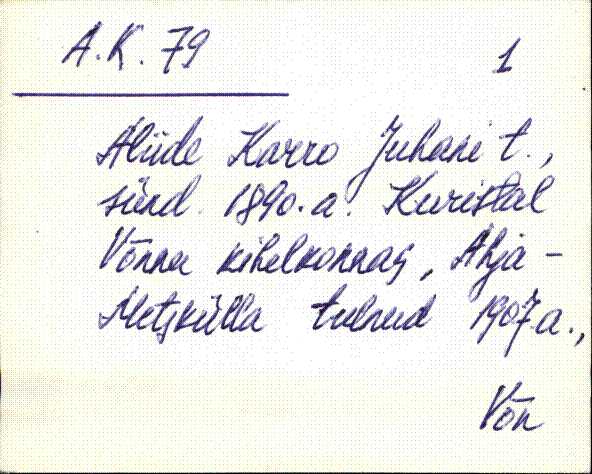 A.K. 79
1
Aliide Karro Juhani t.,
sünd. 1890.a. Kuristal
Võnnu kihelkonnas, Ahja-
Metskülla tulnud 1907.a.,
Võn